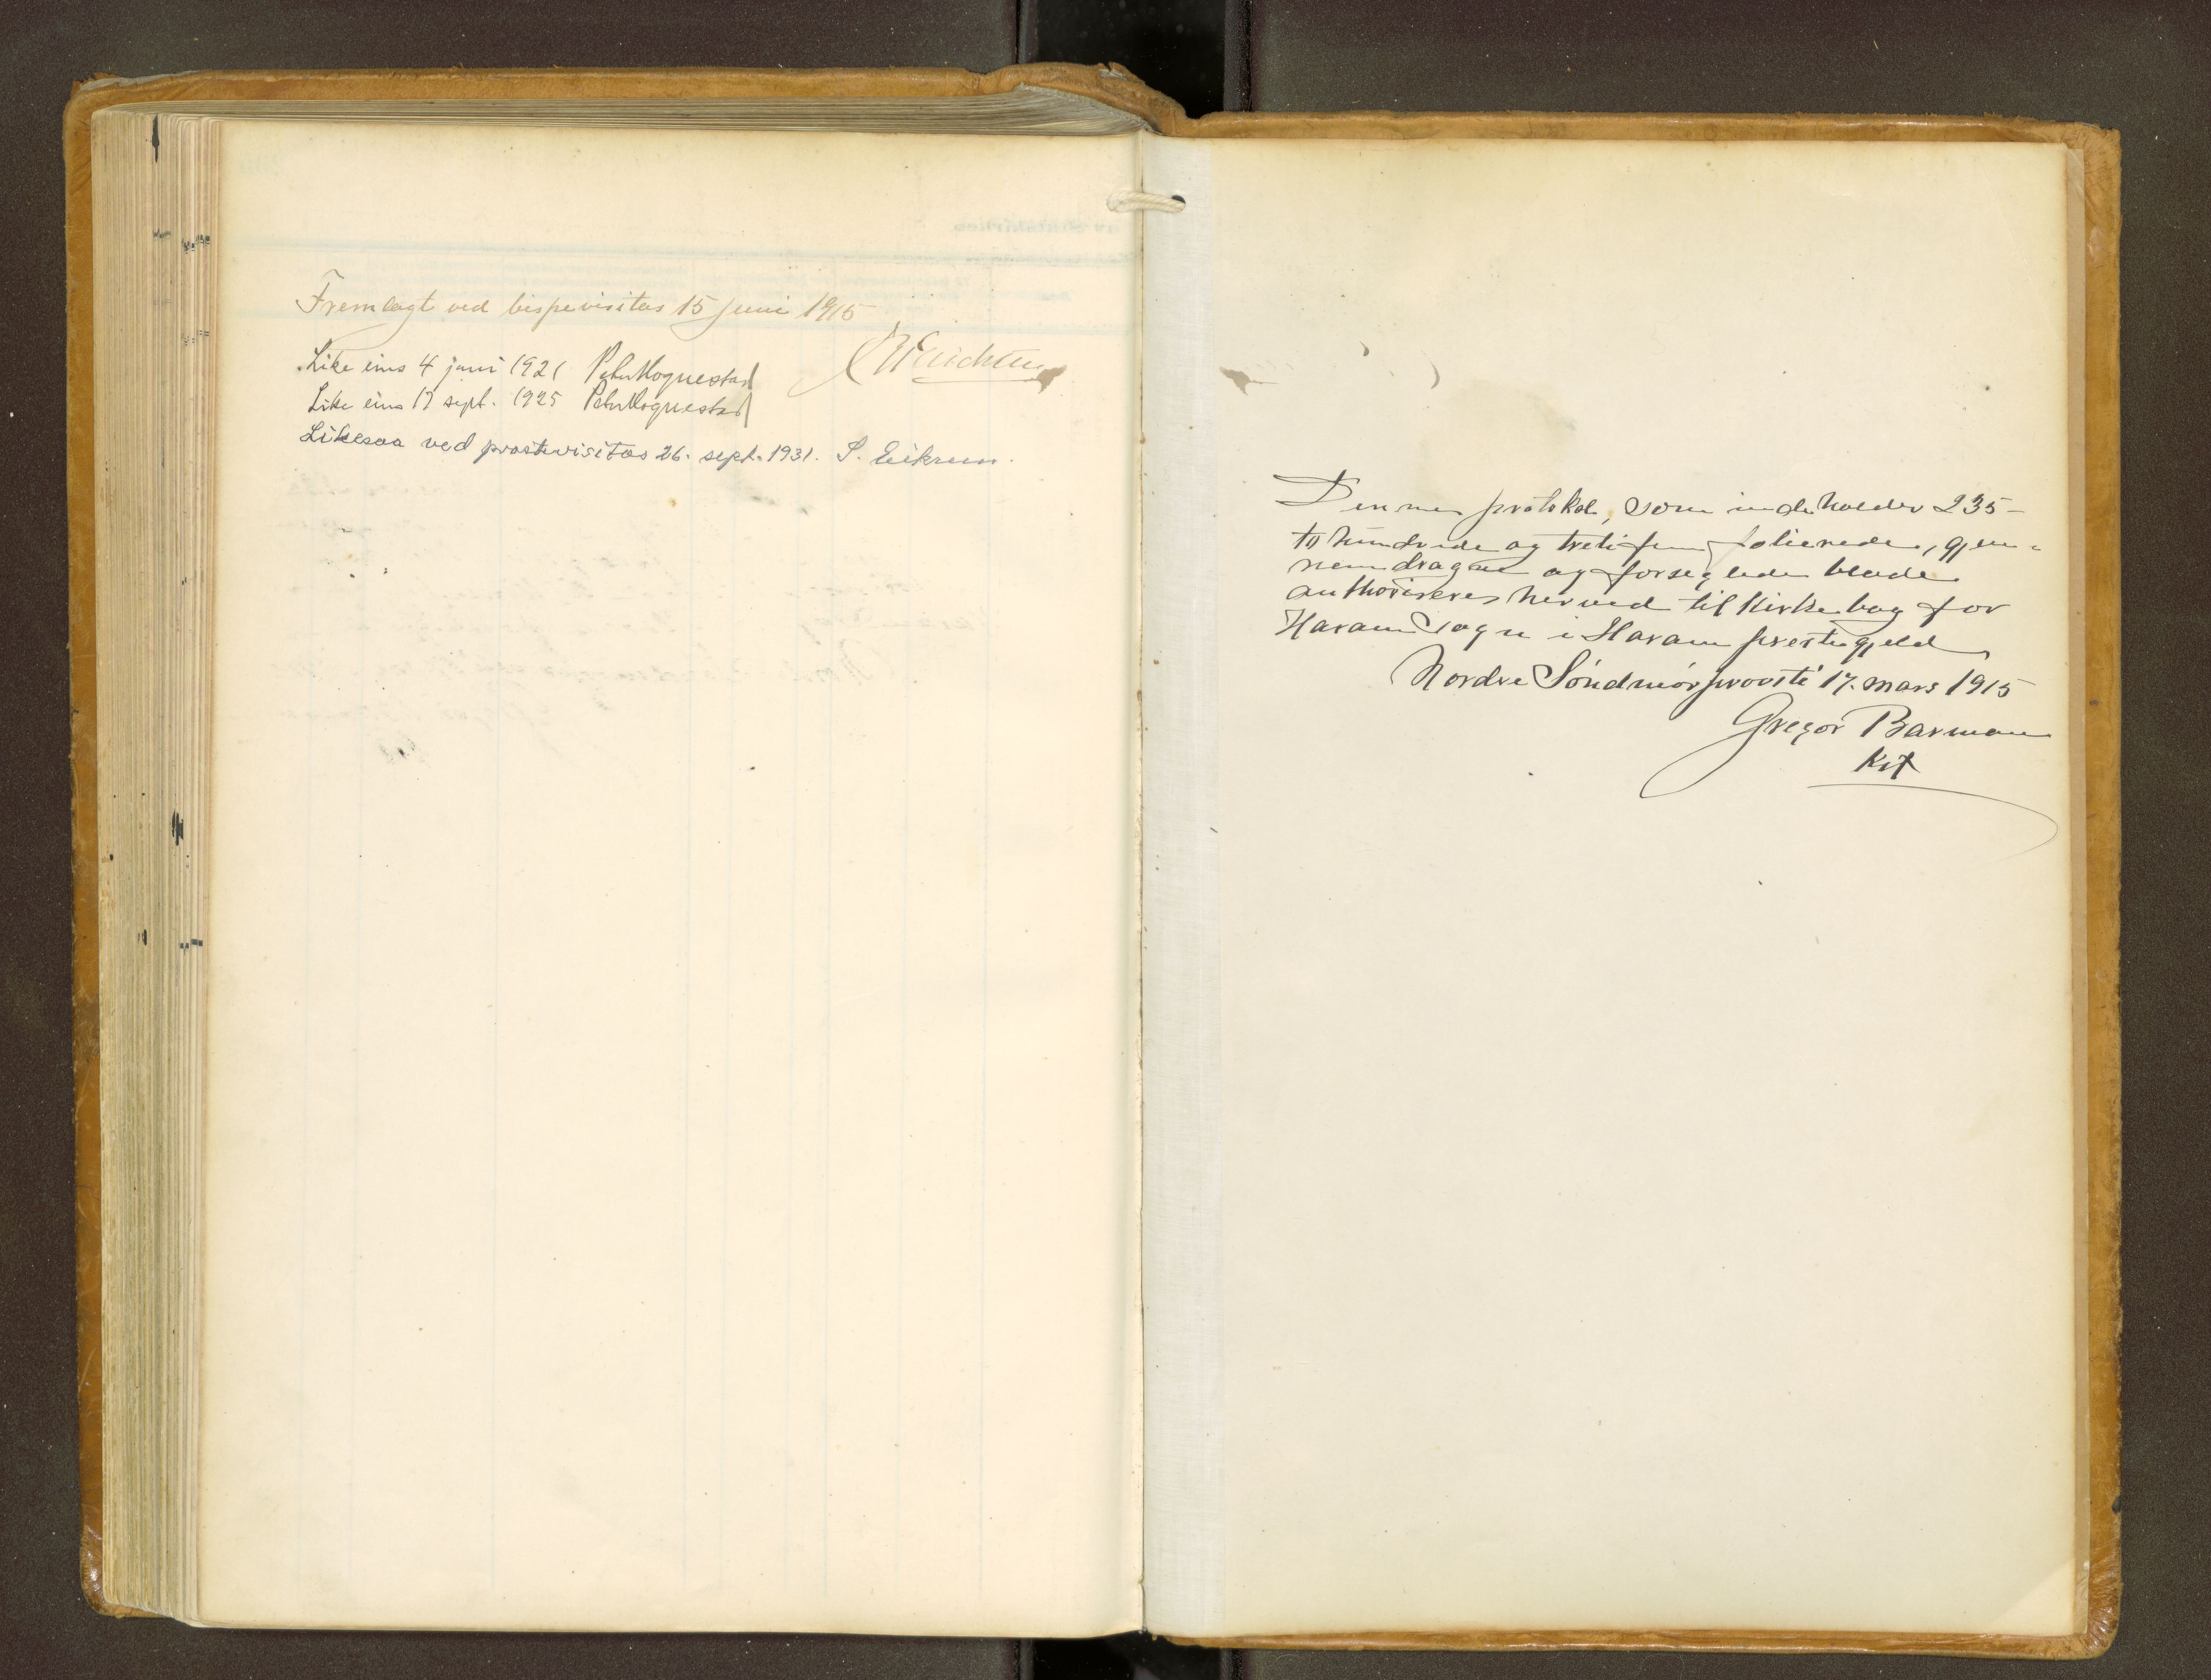 Fremlagt ved bispevisitas 15 juni 1915
Like eins 4 juni 1921 Peter Hognestad
Like eins 17 sept. 1925 Peter Hognestad
Likesaa ved prostevisitas 26. sept. 1931. S. Eikrem.
Denne protokol, som indeholder 235 –
to hundrede og tretifem folierede, gjen-
nemdragne og forseglede blade
authoriseres herved til Kirkebog for
Haram Sogn i Haram prestegjeld
Nordre Söndmör provsti 17. mars 1915
Gregor Barman
Kst